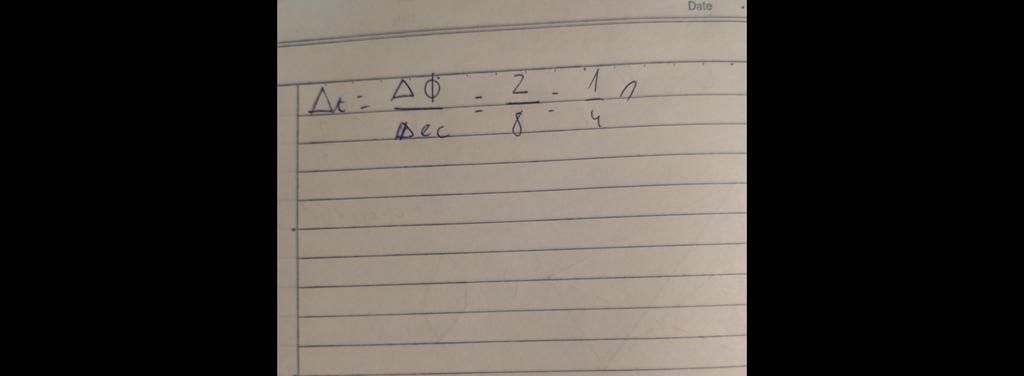 Date
Δt = ΔΦ / Δec = 2 / 8 = 1 / 4 s